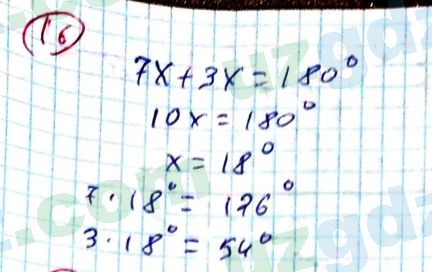 16
7x+3x=180°
10x=180°
x=18°
7·18°=126°
3·18°=54°